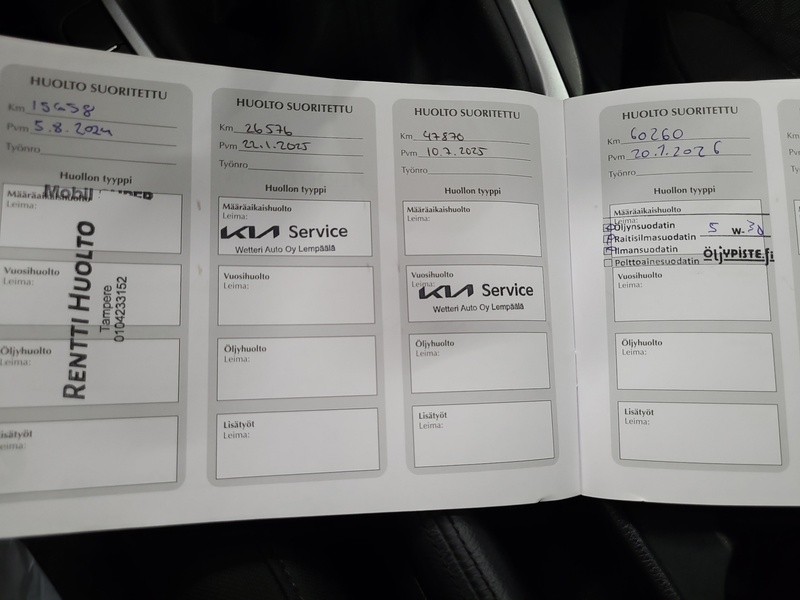 HUOLTO SUORITETTU
Km 15658
Pvm 5.8.2024
Työnro
Huollon tyyppi
Mobil
Leima:
RENTTI HUOLTO
Tampere
0104233152
Vuosihuolto
Leima:
Öljyhuolto
Leima:
isätyöt
eima:
HUOLTO SUORITETTU
Km 26576
Pvm 22.1.2025
Työnro
Huollon tyyppi
Määräaikaishuolto
Leima:
KIA Service
Wetteri Auto Oy Lempäälä
Vuosihuolto
Leima:
Öljyhuolto
Leima:
Lisätyöt
Leima:
HUOLTO SUORITETTU
Km 47870
Pvm 10.7.2025
Työnro
Huollon tyyppi
Määräaikaishuolto
Leima:
Vuosihuolto
Leima:
KIA Service
Wetteri Auto Oy Lempäälä
Öljyhuolto
Leima:
Lisätyöt
Leima:
HUOLTO SUORITETTU
Km 60260
Pvm 20.1.2026
Työnro
Huollon tyyppi
Määräaikaishuolto
Leima:
Öljynsuodatin 5 W-30
Raitisilmasuodatin
Ilmansuodatin
Polttoainesuodatin ÖLJYPISTE.fi
Vuosihuolto
Leima:
Öljyhuolto
Leima:
Lisätyöt
Leima:
Km
Pvm